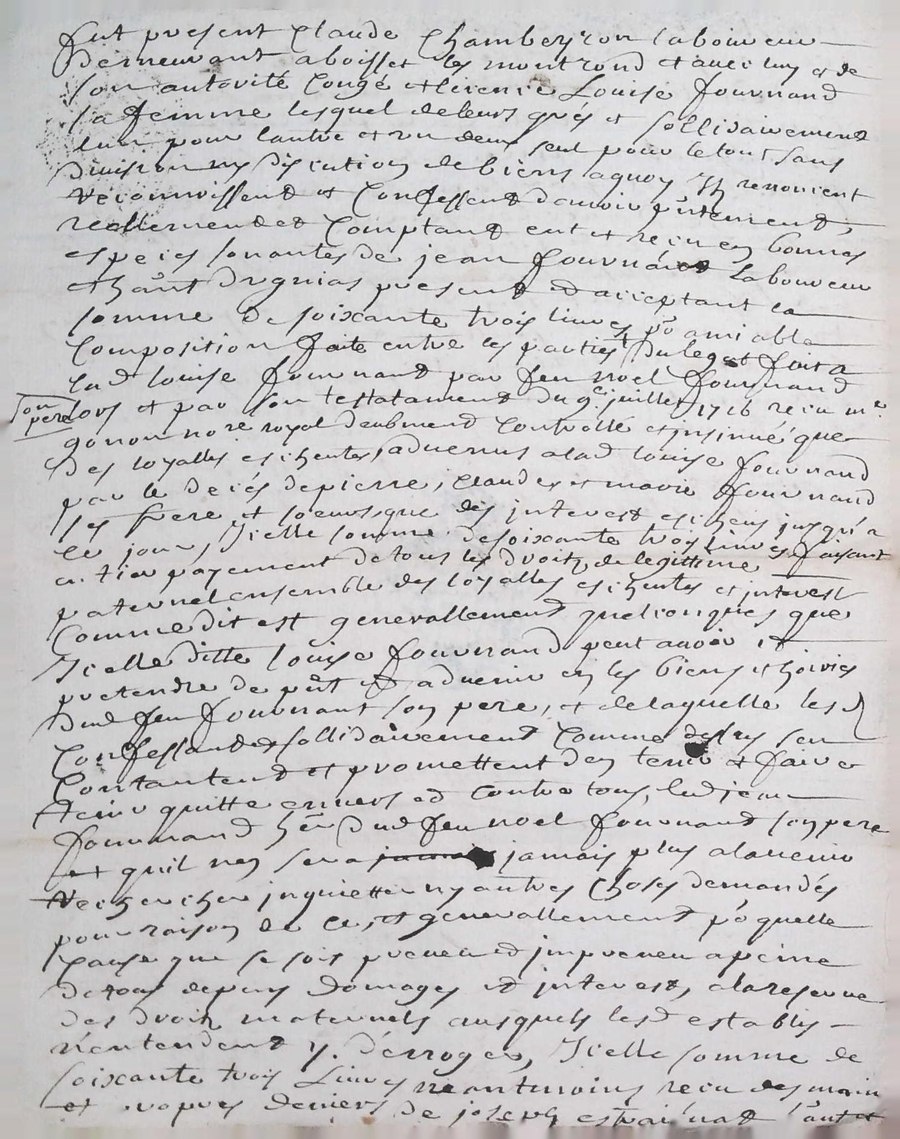 fut present Claude Chambeyron laboureur
demeurant a boisset les montrond et avec luy et de
son autorité Congé et licence Louise fournand
sa femme lesquel de leurs grés et sollidairement
lun pour lautre et un deux seul pour le tout sans
division ny discution de biens aquoy Ils renoncent
reconnoissent et Confessent davoir pntement,
reallement et Comptant eut et reçu en bonnes
especes sonantes de jean fournand laboureur
present et acceptant la
somme de soixante trois livres po amiable
Composition faite entre les parties du legat fait a
lad louise fournand par feu noel fournand
son pere
lors et par son testatament du 9e juillet 1716 reçu me
gonon nore royal deubment Controllé et insinué que
des loyalles escheutes advenus a lad louise fournand
par le decés de pierre, claude et marie fournand
ses frere et soeurs que des interest escheus jusqu'a
ce jour, Icelle somme de soixante trois livres faisant
entier payement de tous les droits de legittime
paternel ensemble des loyalles escheutes et interest
Comme dit est generallement quelconques que
Icelle ditte louise fournand peut avoir et
pretendre de pnt et advenir en les biens et hoiries
dud feu fournant son pere, et de laquelle les d
Confessants sollidairement Comme dessus sen
Contantent et promettent den tenir et faire
tenir quitte envers et contre tous, led jean
fournand her dud feu noel fournand son pere
et quil nen sera jamais plus alavenir
rechercher inquietter ny autres choses demandés
pour raison de ce, et generallement po quelle
cause que se soit preveu et impreveu a peine
de tous depens domages et interest, ala reserve
des droits maternels ausquels lesd establis
n'entendent y deroger, Icelle somme de
soixante trois Livres neantmoins reçu des main
et propres deniers de joseph